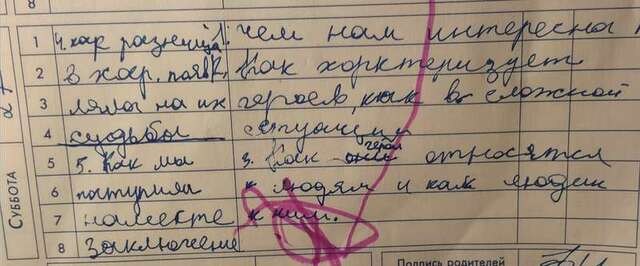 8
1 4. как разница 1. чем нам интересна
2 в хар. появ 2. Как хорктеризует
3 ляла на их героев, как в сложной
4 судьбы ситуации
герои
5 5. Как мы 3. Как относятся
6 поступила к людям и как людик
7 на месте к ним.
8 Заключение
СУББОТА
Подпись родителей